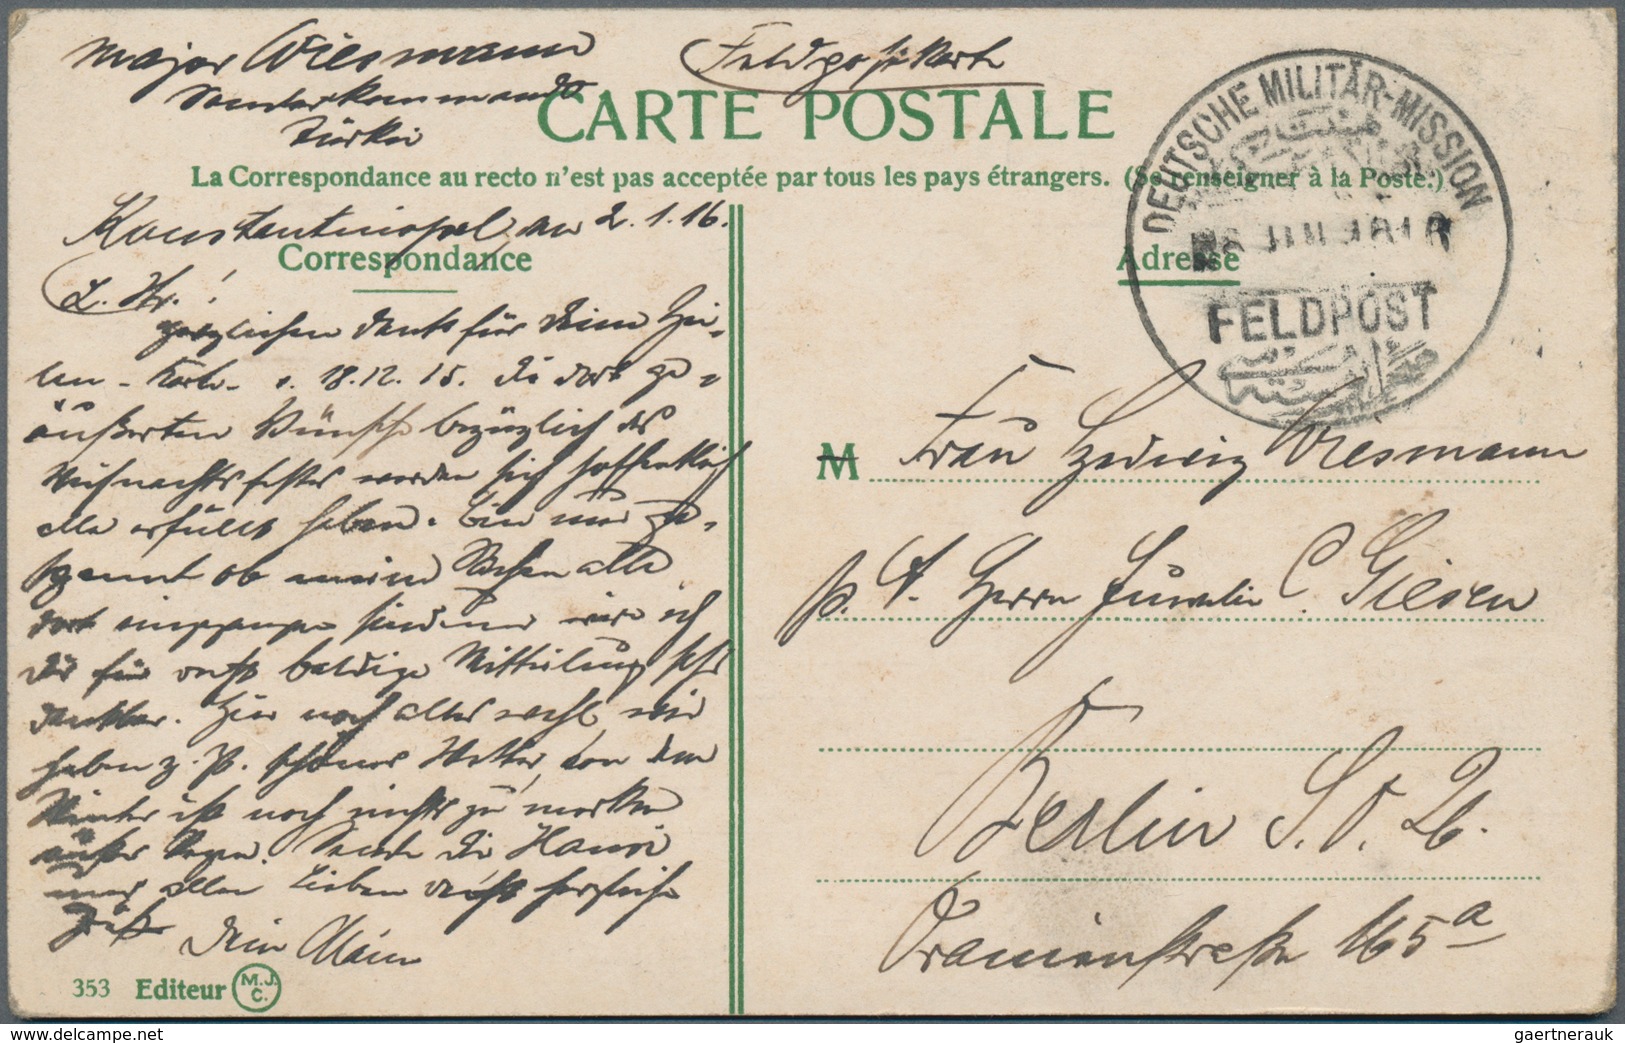 Major Wiesmann
Sonderkommando
Türkei
Feldpostkarte
CARTE POSTALE
La Correspondance au recto n'est pas acceptée par tous les pays étrangers. (Se renseigner à la Poste.)
DEUTSCHE MILITÄR-MISSION
FELDPOST
Konstantinopel, am 2.1.16.
Correspondance
L. H.!
herzlichen Dank für Deine
Karte v. 18.12.15. Die dort ge-
äußerten Wünsche bezüglich des
Weihnachtsfestes werden sich hoffentlich
alle erfüllt haben. Bin nur
ob meine Sachen alle
dort eingegangen sind und wäre ich
Dir für recht baldige Mitteilung sehr
dankbar. Hier noch alles wohl, wir
haben z. Z. schönes Wetter, von dem
Winter ist noch nichts zu merken
außer Regen. Sende Dir Hansi
und allen Lieben recht herzliche
Grüße Dein
353 Editeur M.J.C.
Adresse
M Frau Hedwig Wiesmann
p. A. Herrn Juwelier C. Giesen
Berlin S.O. 26.
Oranienstraße 165a
gaertnerauk